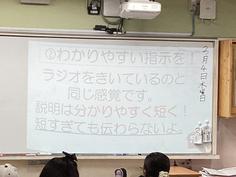 ②わかりやすい指示を!
ラジオをきいているのと
同じ感覚です。
説明は分かりやすく短く!
短すぎても伝わらないよ。
2月4日木曜日